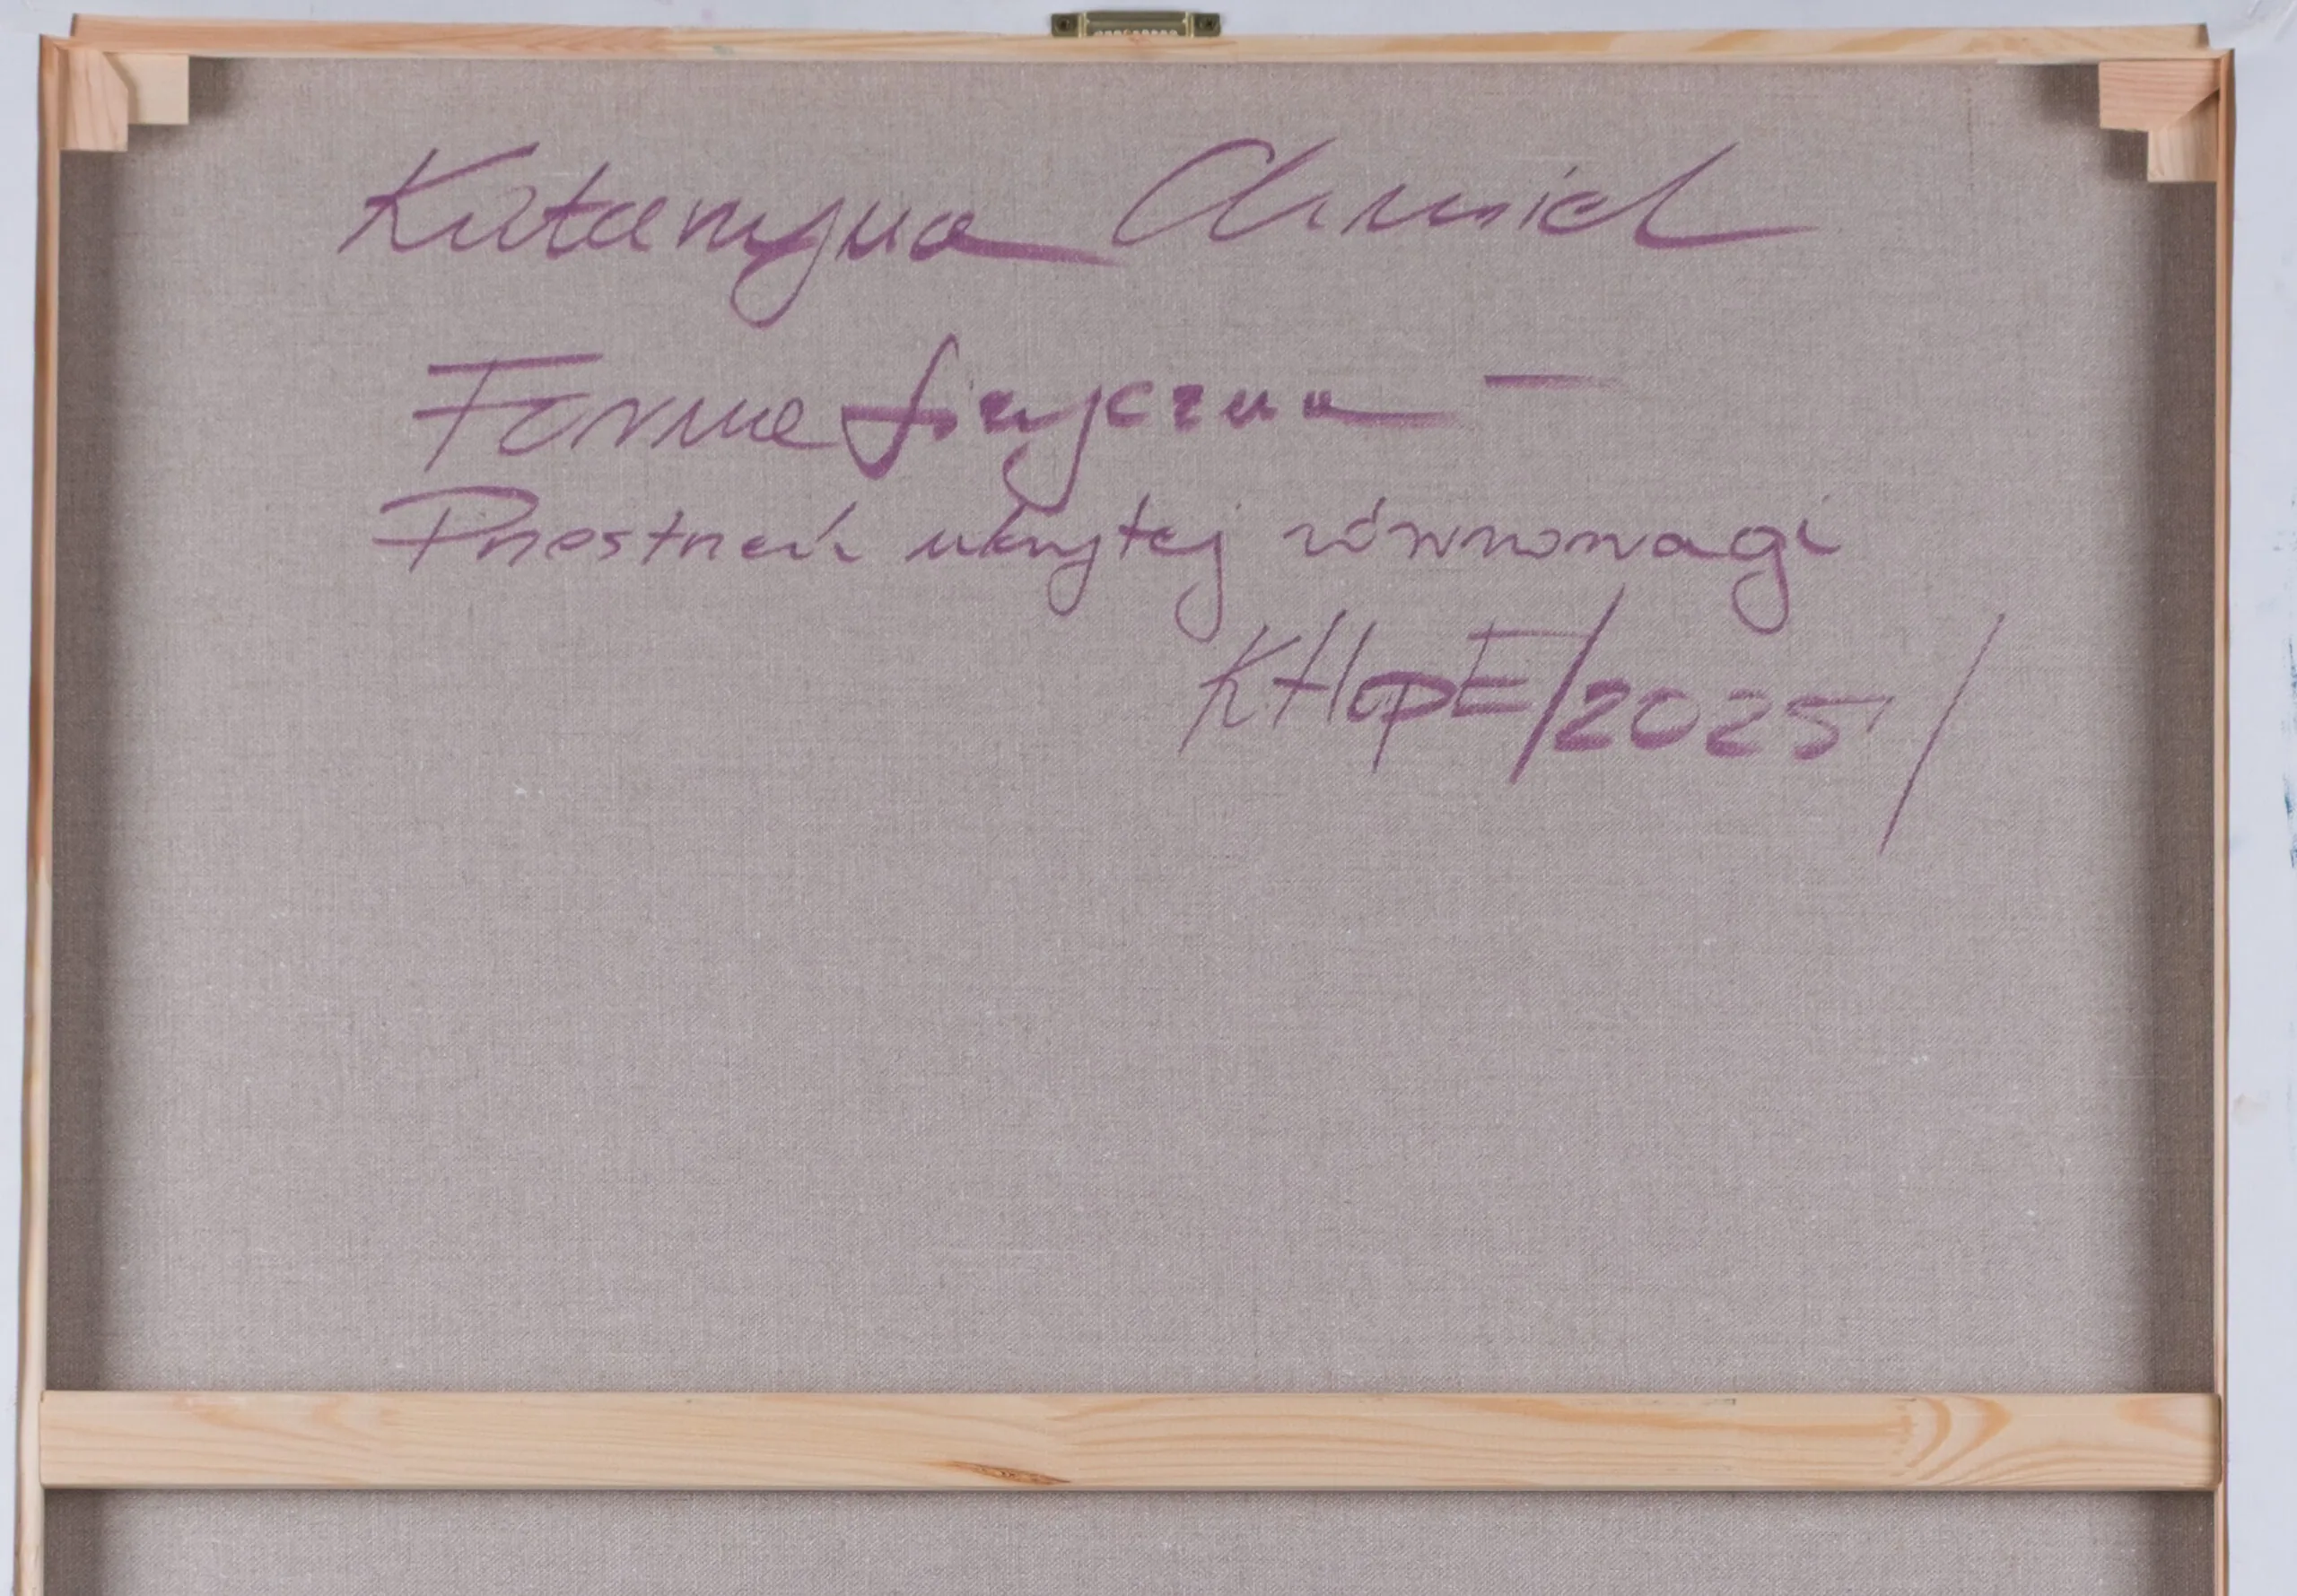 Katarzyna Chmiel
Forma fizyczna –
Przestrzeń ukrytej równowagi
KHopE/2025/